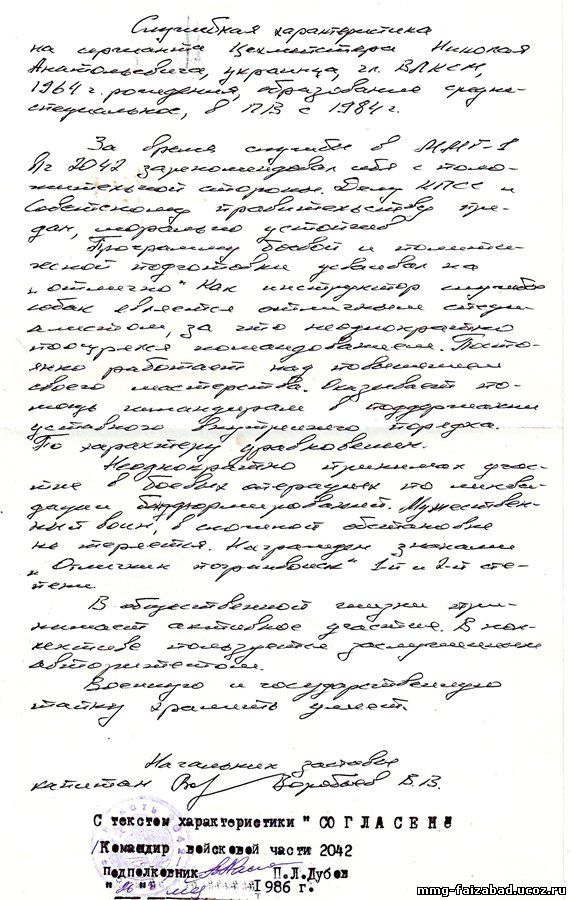 Служебная характеристика
на сержанта Цехмейстера Николая
Анатольевича, украинца, чл. ВЛКСМ,
1964 г. рождения, образование средне-
специальное, в ПВ с 1984 г.
За время службы в ММГ-1
в/ч 2042 зарекомендовал себя с поло-
жительной стороны. Делу КПСС и
Советскому правительству пре-
дан, морально устойчив
Программу боевой и полити-
ческой подготовки усваивал на
„отлично“ Как инструктор службы
собак является отличным специ
алистом, за что неоднократно
поощрялся командованием. Посто-
янно работает над повышением
своего мастерства. Оказывает по-
мощь командирам в поддержании
уставного внутреннего порядка.
По характеру уравновешен.
Неоднократно принимал учас-
тие в боевых операциях по ликви-
дации бандформирований. Мужествен-
ный воин, в сложной обстановке
не теряется. Награжден знаками
„Отличник погранвойск“ 1-й и 2-й сте-
пени.
В общественной жизни при-
нимает активное участие. В кол-
лективе пользуется заслуженным
авторитетом.
Военную и государственную
тайну хранить умеет.
Начальник заставы
капитан Воробьев В.В.
С текстом характеристики "СОГЛАСЕН"
Командир войсковой части 2042
Подполковник П.Л.Дубов
1986 г.
mmg-faizabad.ucoz.ru